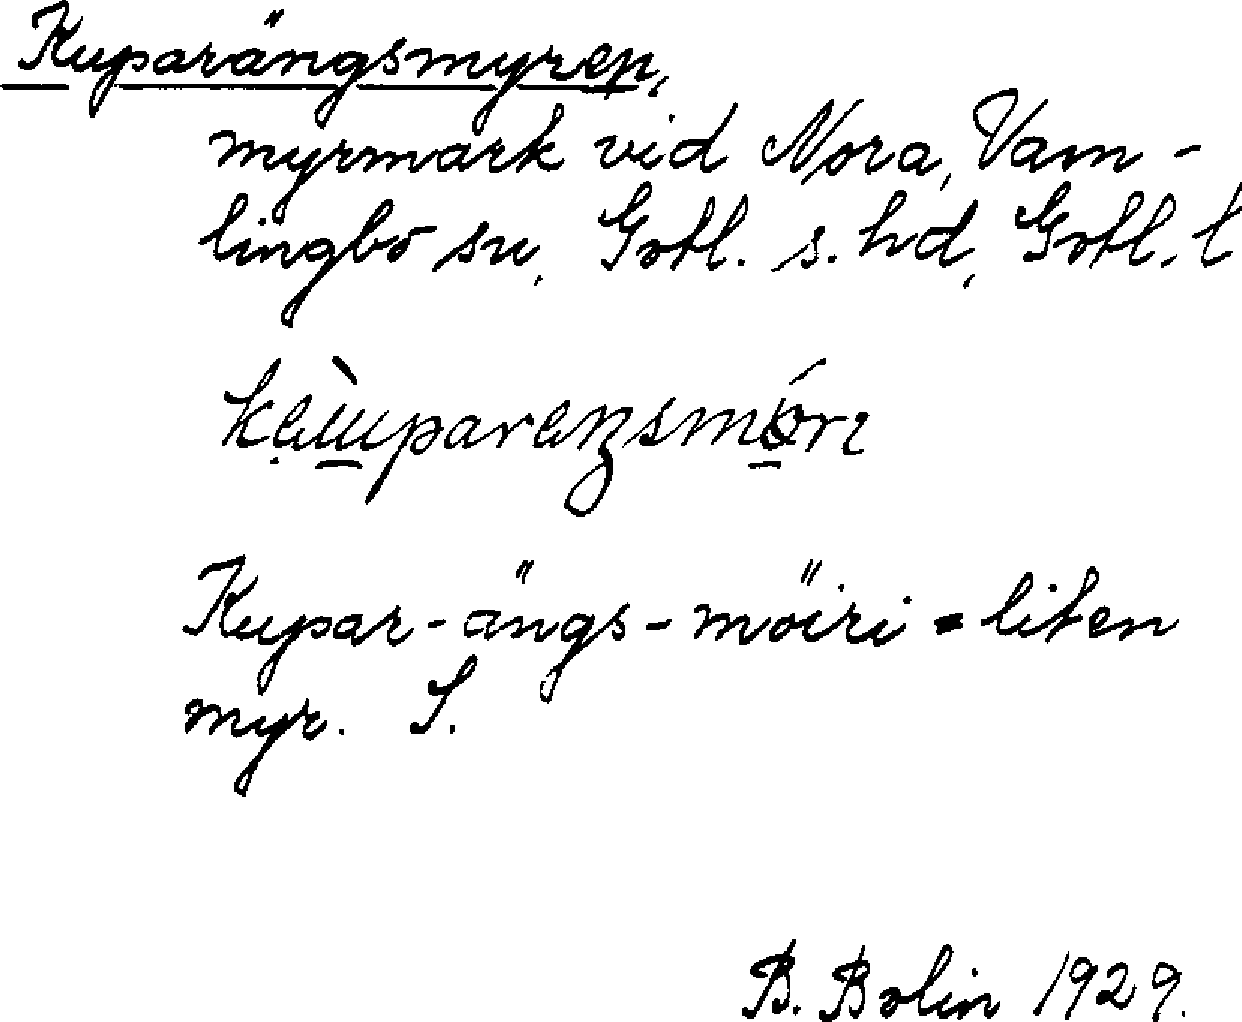 Kuparängsmyren,
myrmark vid Nora, Vam-
lingbo sn, Gotl. s. hd, Gotl. l
Kupar-ängs-möiri = liten
myr. S.
B. Bolin 1929.